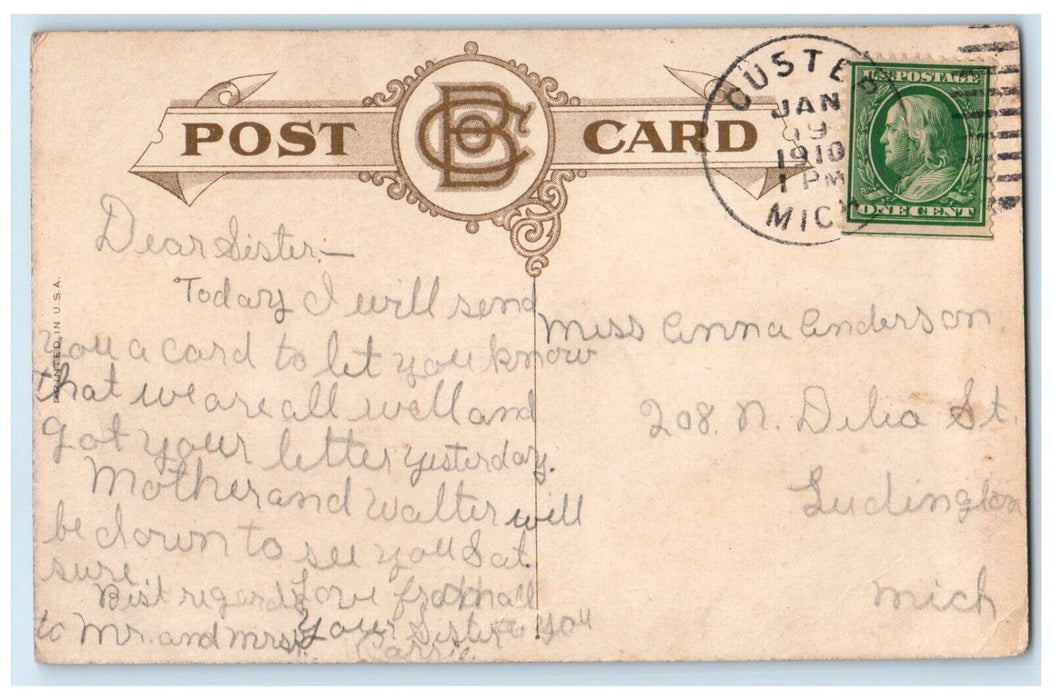 POST CARD
CUSTER
JAN
19
1910
1 PM
MICH
U.S. POSTAGE
ONE CENT
PRINTED IN U.S.A.
Dear Sister:—
Today I will send
you a card to let you know
that we are all well and
got your letter yesterday.
Mother and Walter will
be down to see you Sat
sure.
Best regards Love from all
to Mr. and Mrs. Your Sister to you
Carrie.
Miss Anna Anderson
208. N. Delia St.
Ludington
Mich